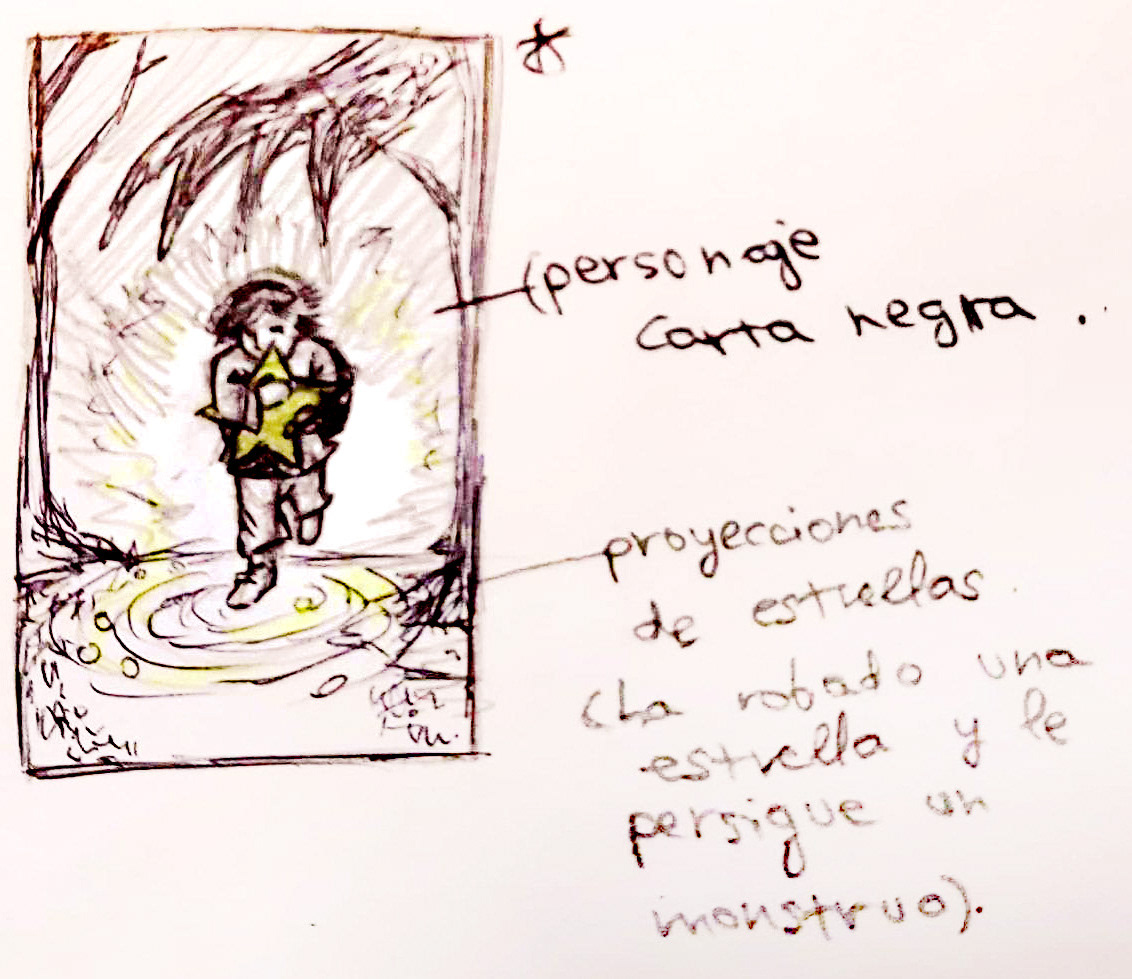 *
(personaje
carta negra.
proyecciones
de estrellas.
(ha robado una
estrella y le
persigue un
monstruo).